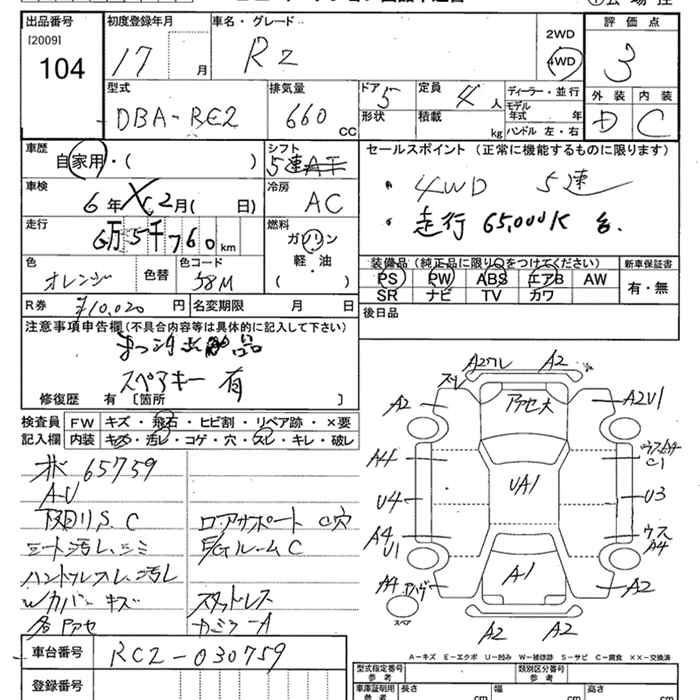 出品番号
[2009]
104
初度登録年月
17 月
車名・グレード
R2
2WD
4WD
評価点
3
外装 内装
D C
型式
DBA-RC2
排気量
660 CC
ドア 5
形状
定員 4 人
積載 kg
ディーラー・並行
モデル年式 年
ハンドル 左・右
車歴
自家用・( )
シフト
5速AT
セールスポイント(正常に機能するものに限ります)
4WD 5速
走行 65,000K 台.
車検
6年 2月( 日)
冷房
AC
走行
6万5千760km
燃料
ガソリン
軽・油
( )
色
オレンジ
色替
色コード
58M
装備品(純正品に限り○をつけてください)
PS PW ABS エアB AW
SR ナビ TV カワ
新車保証書
有・無
R券
¥10,020円
名変期限 月 日
後日品
注意事項申告欄(不具合内容等は具体的に記入して下さい)
スペアキー 有
修復歴 有〔箇所 〕
検査員記入欄
FW キズ・飛石・ヒビ割・リペア跡・×要
内装 キズ・汚レ・コゲ・穴・スレ・キレ・破レ
65759
A-U
下回りS.C
シート汚レ、シミ
ハンドルスレ、汚レ
Wカバーキズ
各アクセ
ロアサポート C穴
E/GルームC
スタッドレス
カギ A
A2ワレ A2
スレ
A2 アクセ大 A2U1
A4 C1
U4 UA1 U3
A4 U1 ウス A4
A4 A1 A2
スペア
A2 A2
A-キズ E-エクボ U-凹み W-補修跡 S-サビ C-腐食 ××-交換済
車台番号
RC2-030759
登録番号
型式指定番号 参考
類別区分番号 参考
車庫証明用 参考
長さ cm
幅 cm
高さ cm